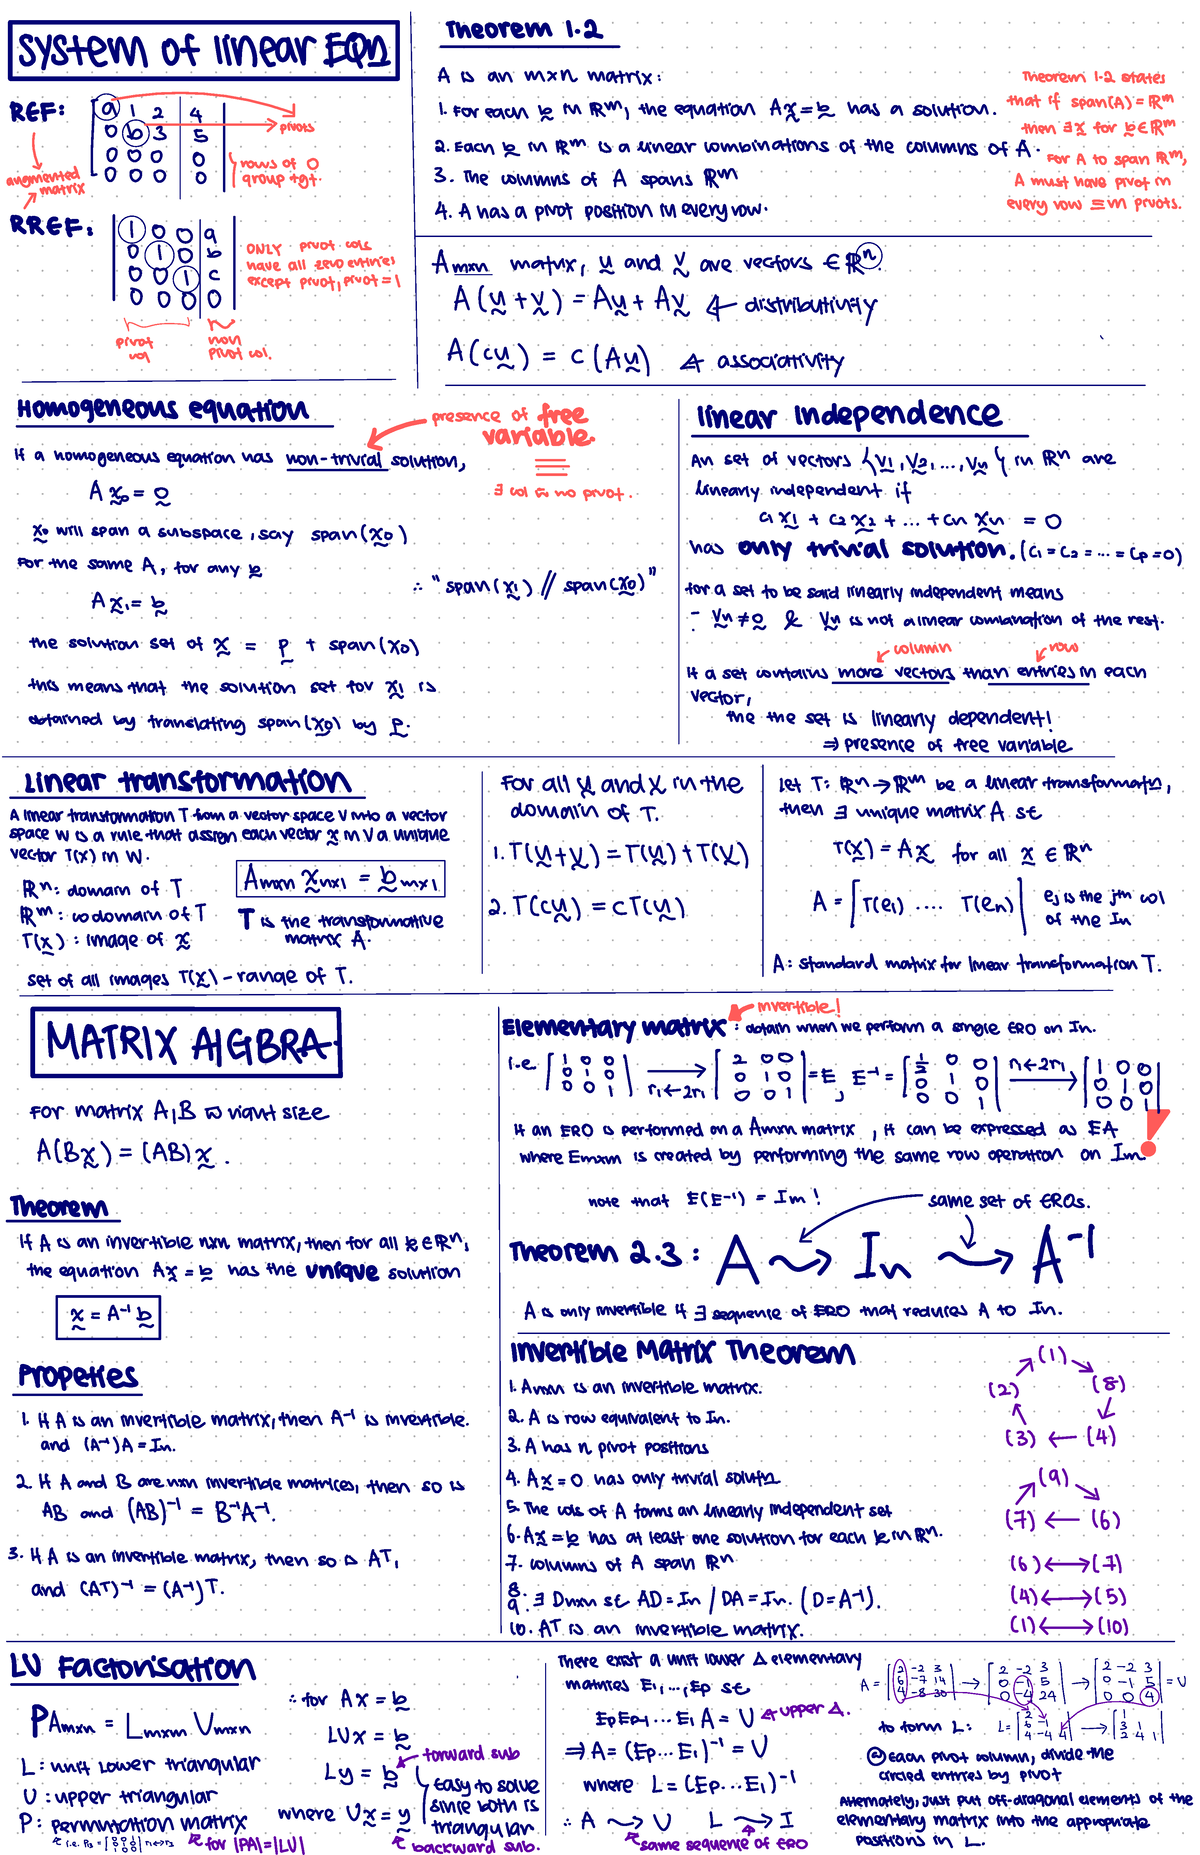 System of linear EQn
REF:
a 1 2 4
0 b 3 5
0 0 0 0
0 0 0 0
pivots
rows of 0
group tgt.
augmented
matrix
RREF:
1 0 0 a
0 1 0 b
0 0 1 c
0 0 0 0
ONLY pivot cols
have all zero entries
except pivot, pivot = 1
pivot
col
non
pivot col.
Theorem 1.2
A is an mxn matrix:
1. For each b in ℝᵐ, the equation Ax = b has a solution.
2. Each b in ℝᵐ is a linear combinations of the columns of A.
3. The columns of A spans ℝᵐ
4. A has a pivot position in every row.
Theorem 1.2 states
that if span(A) = ℝᵐ
then ∃ x for b ∈ ℝᵐ
For A to span ℝᵐ,
A must have pivot in
every row ≡ m pivots.
Amxn matrix, u and v are vectors ∈ ℝⁿ.
A(u + v) = Au + Av ← distributivity
A(cu) = c(Au) ← associativity
Homogeneous equation
presence of free
variable.
≡
∃ col w no pivot.
If a homogeneous equation has non-trivial solution,
A x₀ = 0
x₀ will span a subspace, say span(x₀)
For the same A, for any b
A x₁ = b
∴ "span(x₁) // span(x₀)"
the solution set of x = p + span(x₀)
this means that the solution set for x₁ is
obtained by translating span(x₀) by p.
linear Independence
An set of vectors {v₁, v₂, ..., vₙ} in ℝⁿ are
linearly independent if
c₁x₁ + c₂x₂ + ... + cₙxₙ = 0
has only trivial solution. (c₁ = c₂ = ... = cp = 0)
for a set to be said linearly independent means
- vₙ ≠ 0 & vₙ is not a linear combination of the rest.
column
row
If a set contains more vectors than entries in each
vector,
the the set is linearly dependent!
⇒ presence of free variable
Linear transformation
A linear transformation T from a vector space V into a vector
space W is a rule that assign each vector x in V a unique
vector T(x) in W.
ℝⁿ: domain of T
ℝᵐ: codomain of T
T(x): image of x
set of all images T(x) – range of T.
Amxn xnx1 = bmx1
T is the transformative
matrix A.
For all u and v in the
domain of T.
1. T(u + v) = T(u) + T(v)
2. T(cu) = cT(u)
Let T: ℝⁿ → ℝᵐ be a linear transformatn,
then ∃ unique matrix A st
T(x) = Ax for all x ∈ ℝⁿ
A = [T(e₁) .... T(eₙ)] ej is the jᵗʰ col
of the In
A: standard matrix for linear transformation T.
MATRIX AlGBRA
For matrix A, B w right size
A(Bx) = (AB)x.
Theorem
If A is an invertible nxn matrix, then for all b ∈ ℝⁿ,
the equation Ax = b has the unique solution
x = A⁻¹ b
Propeties
1. If A is an invertible matrix, then A⁻¹ is invertible.
and (A⁻¹)A = In.
2. If A and B are nxn invertible matrices, then so is
AB and (AB)⁻¹ = B⁻¹A⁻¹.
3. If A is an invertible matrix, then so is AT,
and (AT)⁻¹ = (A⁻¹)T.
invertible!
Elementary matrix: obtain when we perform a single ERO on In.
i.e
1 0 0
0 1 0
0 0 1
r₁←2r₁
2 0 0
0 1 0
0 0 1
= E, E⁻¹ =
1/2 0 0
0 1 0
0 0 1
r₁←2r₁
1 0 0
0 1 0
0 0 1
If an ERO is performed on a Amxn matrix, it can be expressed as EA
where Emxm is created by performing the same row operation on Im!
note that E(E⁻¹) = Im!
same set of EROs.
Theorem 2.3: A ⇝ In ⇝ A⁻¹
A is only invertible if ∃ sequence of ERO that reduces A to In.
Invertible Matrix Theorem
1. Anxn is an invertible matrix.
2. A is row equivalent to In.
3. A has n pivot positions
4. Ax = 0 has only trivial solutn
5. The cols of A forms an linearly independent set
6. Ax = b has at least one solution for each b in ℝⁿ.
7. columns of A span ℝⁿ
8.
9. ∃ Dnxn st AD = In / DA = In. (D = A⁻¹).
10. AT is an invertible matrix.
(1)
(2) (8)
(3) ← (4)
(9)
(7) ← (6)
(6) ↔ (7)
(4) ↔ (5)
(1) ↔ (10)
LU Factorisation
PAmxn = Lmxm Umxn
L: unit lower triangular
U: upper triangular
P: permutation matrix
for |PA| = |LU|
∴ for Ax = b
LUx = b
Ly = b
forward sub
where Ux = y
backward sub.
Easy to solve
since both is
triangular
There exist a unit lower Δ elementary
matrices E₁, ..., Ep st
EpEp-1 ... E₁ A = U ← upper Δ.
⇒ A = (Ep ... E₁)⁻¹ = U
where L = (Ep ... E₁)⁻¹
∴ A ⇝ U L ⇝ I
same sequence of ERO
A =
2 -2 3
6 -7 14
4 -8 30
→
2 -2 3
0 -1 5
0 -4 24
→
2 -2 3
0 -1 5
0 0 4
= U
to form L: L =
2
6 -1
4 -4 4
→
1
3 1
2 4 1
@ Each pivot column, divide the
circled entries by pivot
Alternately, just put off-diagonal elements of the
elementary matrix into the appropriate
positions in L.